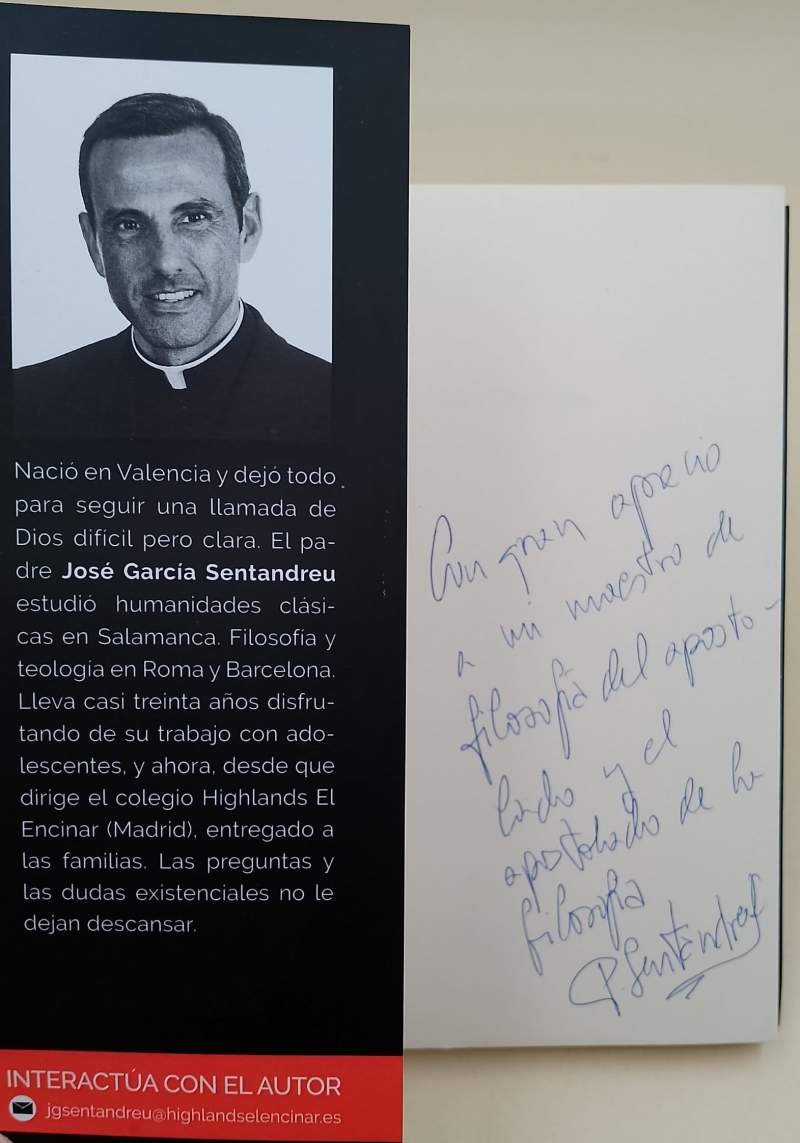 Nació en Valencia y dejó todo
para seguir una llamada de
Dios difícil pero clara. El pa-
dre José García Sentandreu
estudió humanidades clási-
cas en Salamanca. Filosofía y
teología en Roma y Barcelona.
Lleva casi treinta años disfru-
tando de su trabajo con ado-
lescentes, y ahora, desde que
dirige el colegio Highlands El
Encinar (Madrid), entregado a
las familias. Las preguntas y
las dudas existenciales no le
dejan descansar.
INTERACTÚA CON EL AUTOR
jgsentandreu@highlandselencinar.es
Con gran aprecio
a mi maestro de
filosofía del aposto-
lado y el
apostolado de la
filosofía
P. Sentandreu